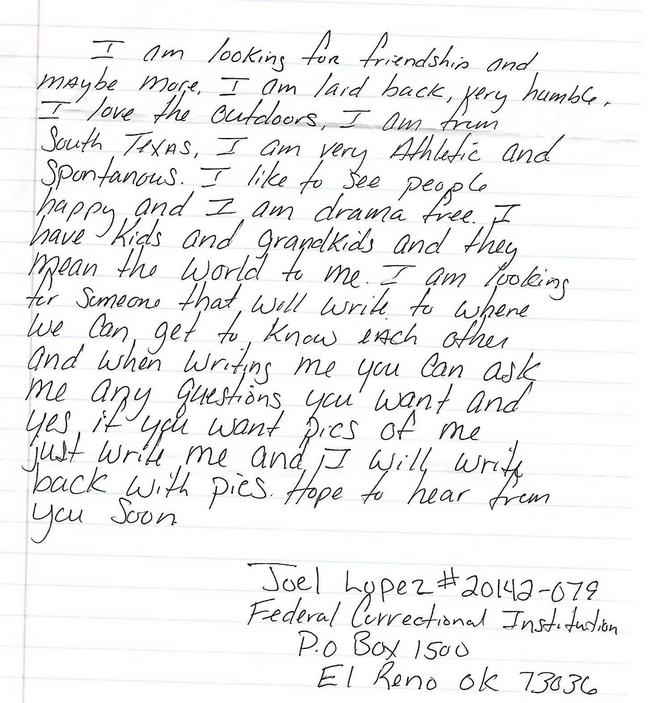 I am looking for friendship and
maybe more. I am laid back, very humble.
I love the outdoors, I am from
South Texas, I am very Athletic and
Spontanous. I like to see people
happy and I am drama free. I
have kids and grandkids and they
mean the world to me. I am looking
for Someone that will write to where
we can get to know each other
and when writing me you can ask
me any questions you want and
yes if you want pics of me
just write me and I will write
back with pics. Hope to hear from
you Soon
Joel Lopez #20142-079
Federal Correctional Institustion
P.O Box 1500
El Reno Ok 73036